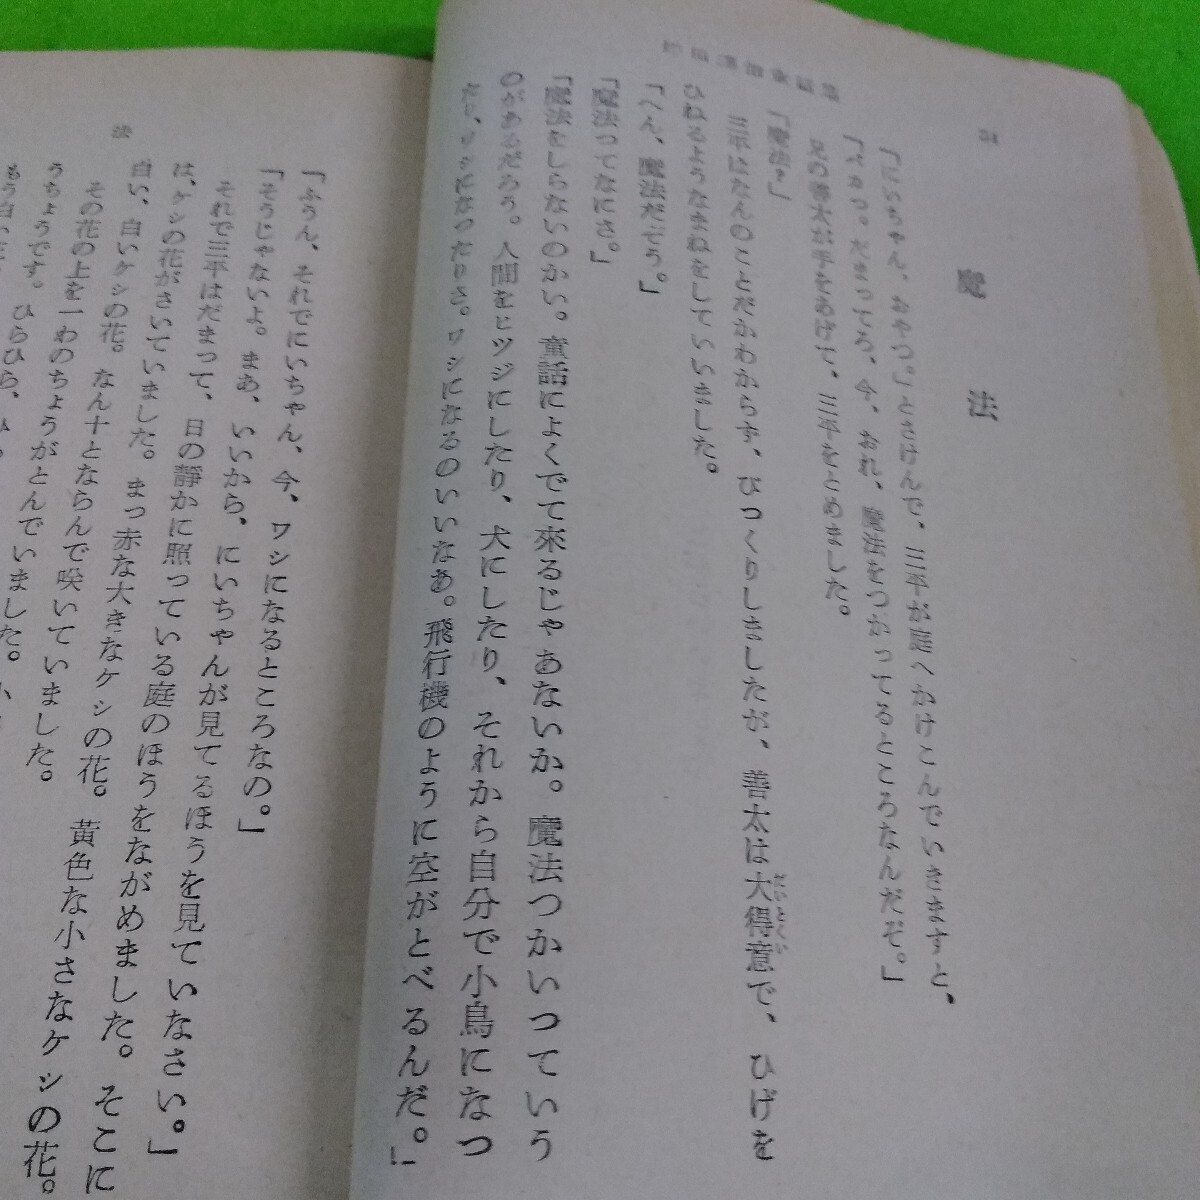 54
魔法
「にいちゃん、おやつ。」とさけんで、三平が庭へかけこんでいきますと、
「バカっ。だまってろ、今、おれ、魔法をつかってるところなんだぞ。」
兄の善太が手をあげて、三平をとめました。
「魔法？」
三平はなんのことだかわからず、びっくりしましたが、善太は大得意で、ひげを
だいとくい
ひねるようなまねをしていいました。
「へん、魔法だぞう。」
「魔法ってなにさ。」
「魔法をしらないのかい。童話によくでて來るじゃあないか。魔法つかいっていう
のがあるだろう。人間をヒツジにしたり、犬にしたり、それから自分で小鳥になっ
たり、ワシになったりさ。ワシになるのいいなあ。飛行機のように空がとべるんだ。」
法
「ふうん、それでにいちゃん、今、ワシになるところなの。」
「そうじゃないよ。まあ、いいから、にいちゃんが見てるほうを見ていなさい。」
それで三平はだまって、日の静かに照っている庭のほうをながめました。そこに
は、ケシの花がさいていました。まっ赤な大きなケシの花。黄色な小さなケシの花。
白い、白いケシの花。なん十とならんで咲いていました。
その花の上を一わのちょうがとんでいました。
うちょうです。ひらひら、ひ
もう白い花